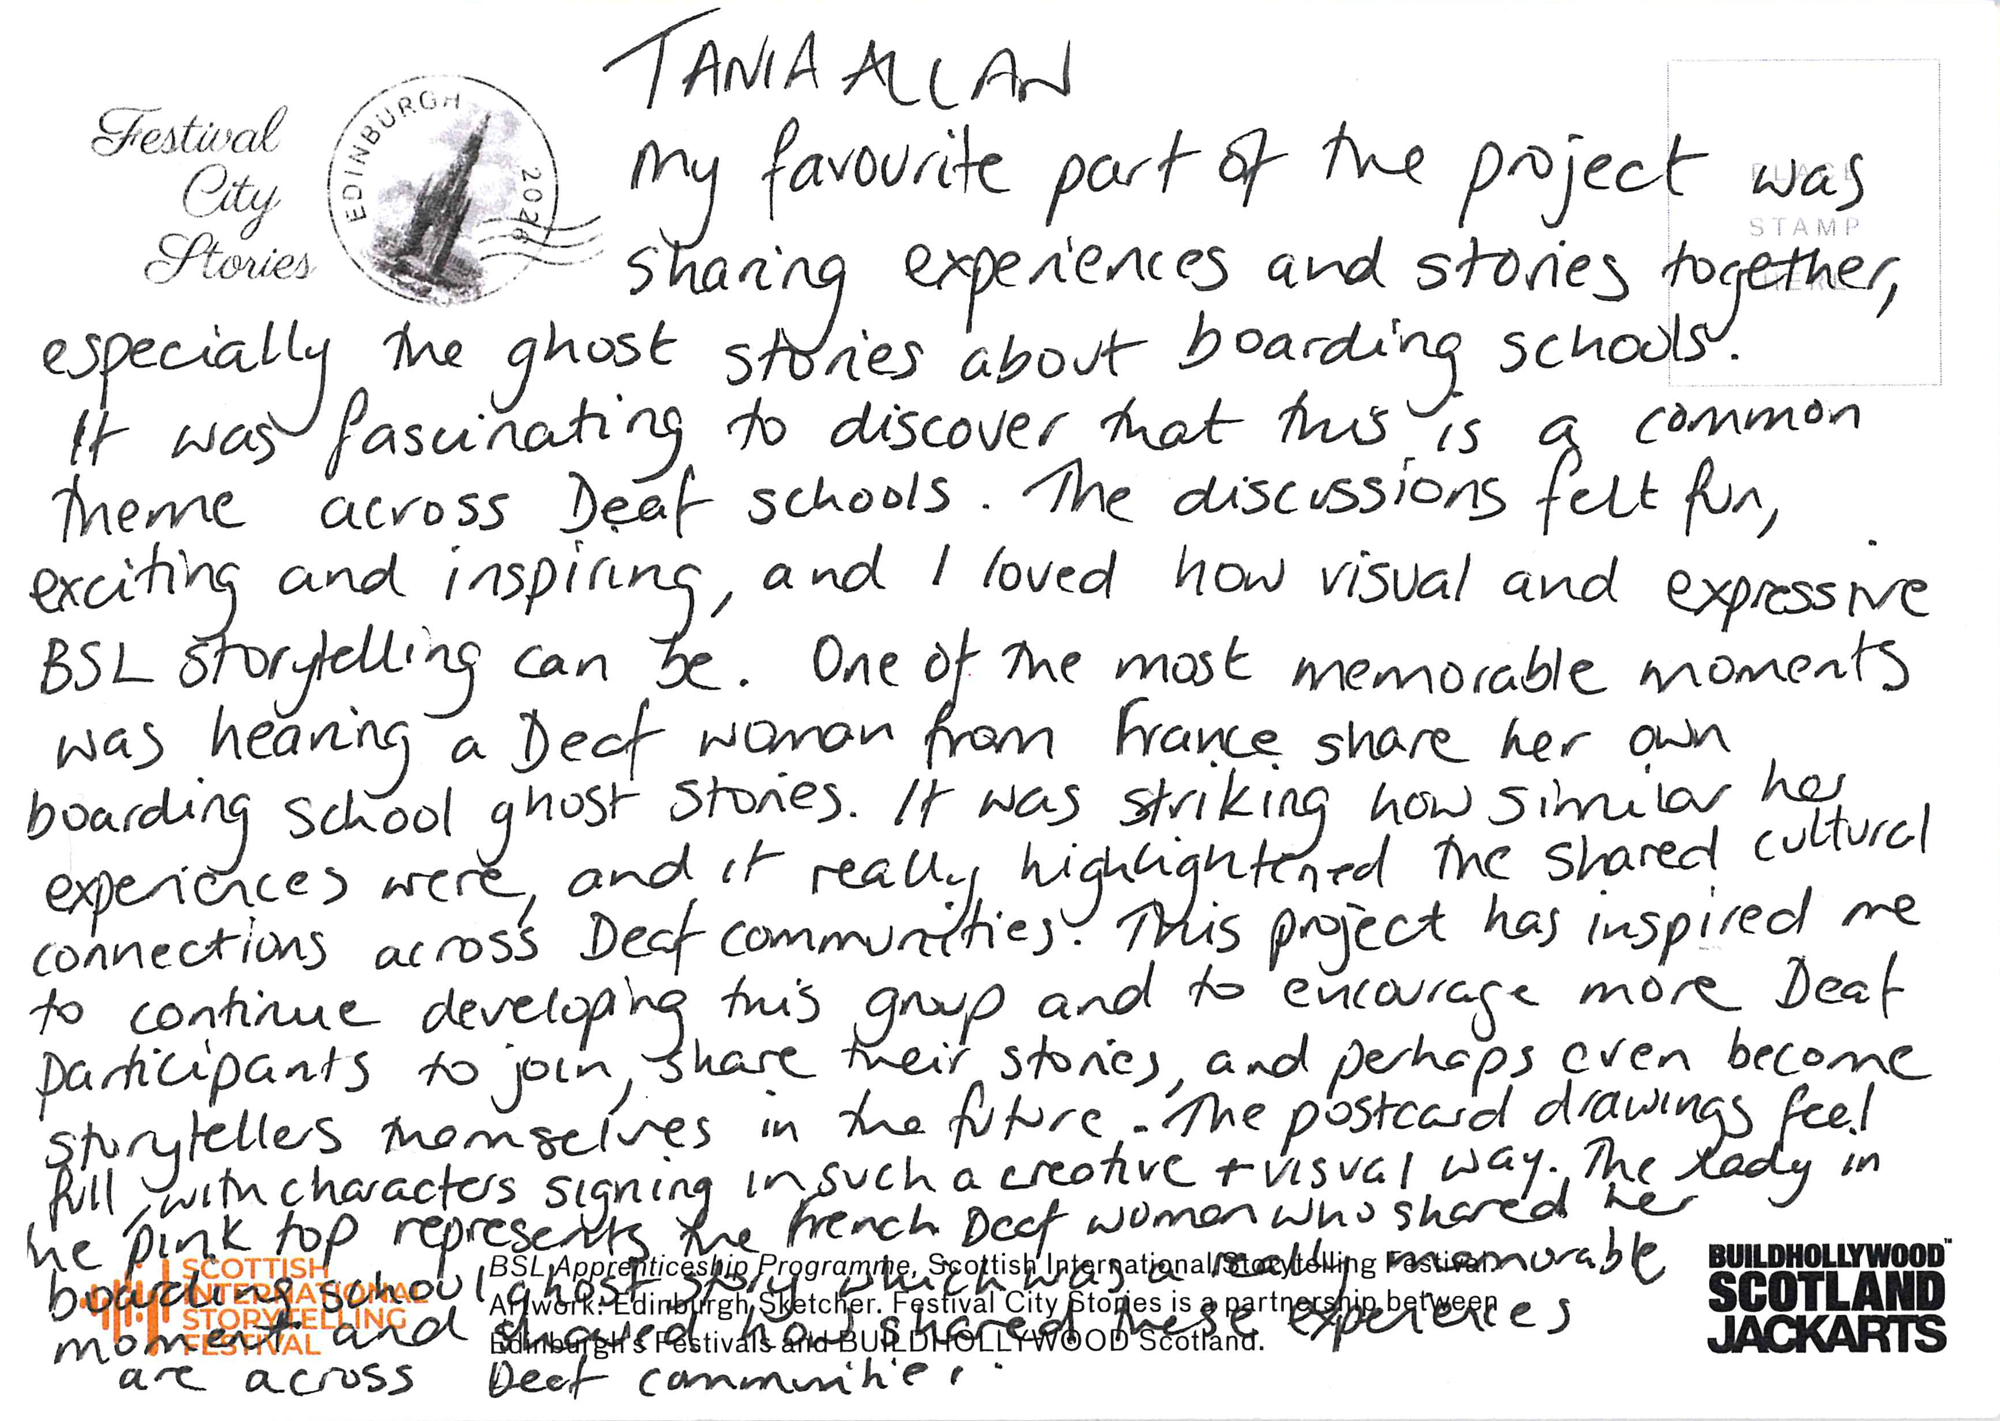 TANIA ALLAN
Festival
City
Stories
EDINBURGH 2026
PLACE
STAMP
HERE
My favourite part of the project was
sharing experiences and stories together,
especially the ghost stories about boarding schools.
It was fascinating to discover that this is a common
theme across Deaf schools. The discussions felt fun,
exciting and inspiring, and I loved how visual and expressive
BSL storytelling can be. One of the most memorable moments
was hearing a Deaf woman from France share her own
boarding school ghost stories. It was striking how similar her
experiences were, and it really highlightened the shared cultural
connections across Deaf communities. This project has inspired me
to continue developing this group and to encourage more Deaf
Participants to join, share their stories, and perhaps even become
storytellers themselves in the future. The postcard drawings feel
full with characters signing in such a creative + visual way. The lady in
he pink top represents the French Deaf woman who shared her
boarding school ghost story which was a really memorable
moment and showed how shared these experiences
are across Deaf communities.
SCOTTISH
INTERNATIONAL
STORYTELLING
FESTIVAL
BSL Apprenticeship Programme, Scottish International Storytelling Festival.
Artwork: Edinburgh Sketcher. Festival City Stories is a partnership between
Edinburgh's Festivals and BUILDHOLLYWOOD Scotland.
BUILDHOLLYWOOD™
SCOTLAND
JACKARTS